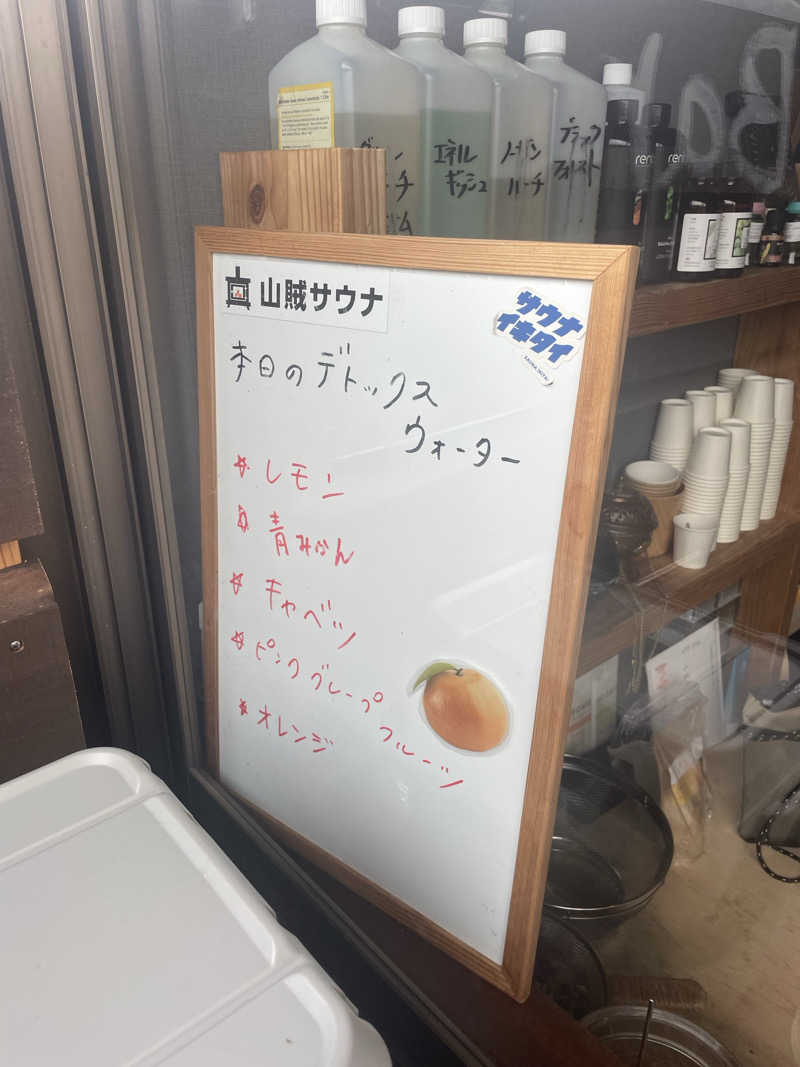 エネル
ギッシュ
ブラック
フォレスト
山賊サウナ
サウナ
イキタイ
本日のデトックス
ウォーター
☆ レモン
☆ 青みかん
☆ キャベツ
☆ ピンクグレープ
フルーツ
☆ オレンジ